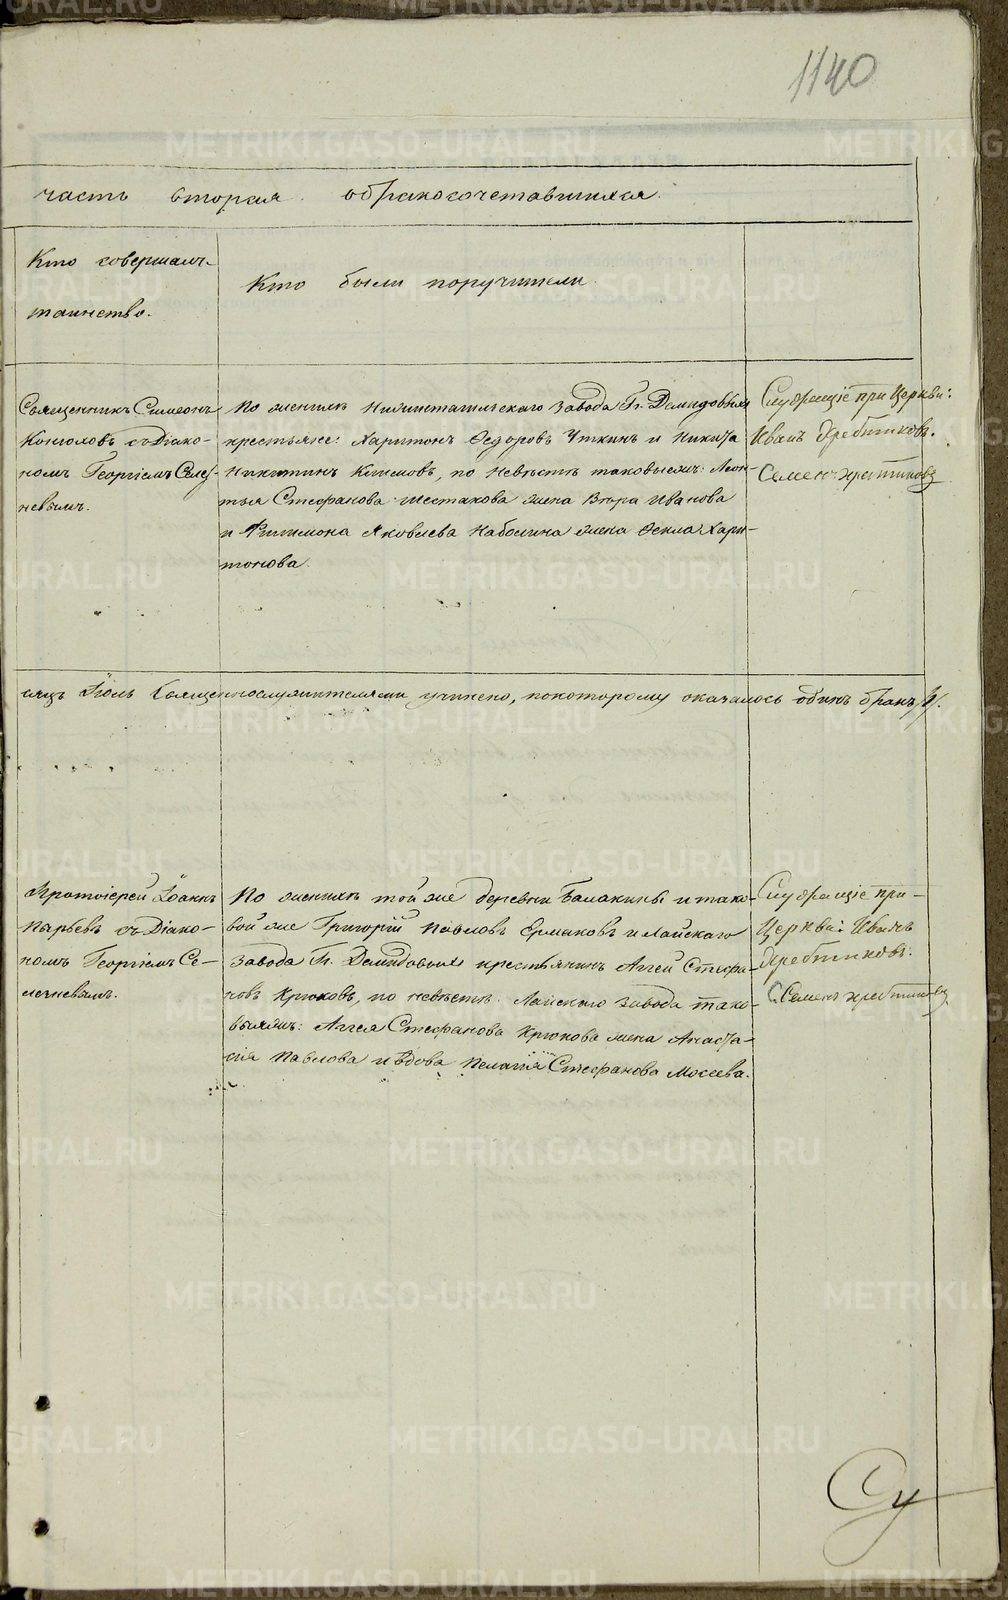 1140
часть вторая о бракосочетавшихся.
Кто совершалъ
таинство.
Кто были поручители.
Священникъ Симеонъ
Конюховъ съ Діако-
номъ Георгіемъ Селез-
невымъ.
По женихѣ Нижнетагильскаго завода Гг. Демидовыхъ
крестьяне: Харитонъ Ѳедоровъ Уткинъ и Никита
Никитинъ Климовъ, по невѣстѣ таковыежъ: Леон-
тья Стефанова Шестакова жена Вѣра Иванова
и Филимона Яковлева Наболина жена Ѳекла Хари-
тонова.
Служащіе при Церкви:
Иванъ Хребтиковъ.
Семенъ Хребтиковъ
сяцъ Іюль Священнослужителями учинено, покоторому оказалось одинъ бракъ /1/.
Протоіерей Іоаннъ
Парьевъ съ Діако-
номъ Георгіемъ Се-
лезневымъ.
По женихѣ той же деревни Балакиной и тако-
вой же Григорій Павловъ Ермаковъ и Лайскаго
завода Гг. Демидовыхъ крестьянинъ Аггей Стефа-
новъ Крюковъ, по невѣстѣ: Лайскаго завода тако-
выяжъ: Аггея Стефанова Крюкова жена Анаста-
сія Павлова и вдова Пелагія Стефанова Мосеева.
Служащіе при-
Церкви: Иванъ
Хребтиковъ.
Семенъ Хребтиковъ
METRIKI.GASO-URAL.RU